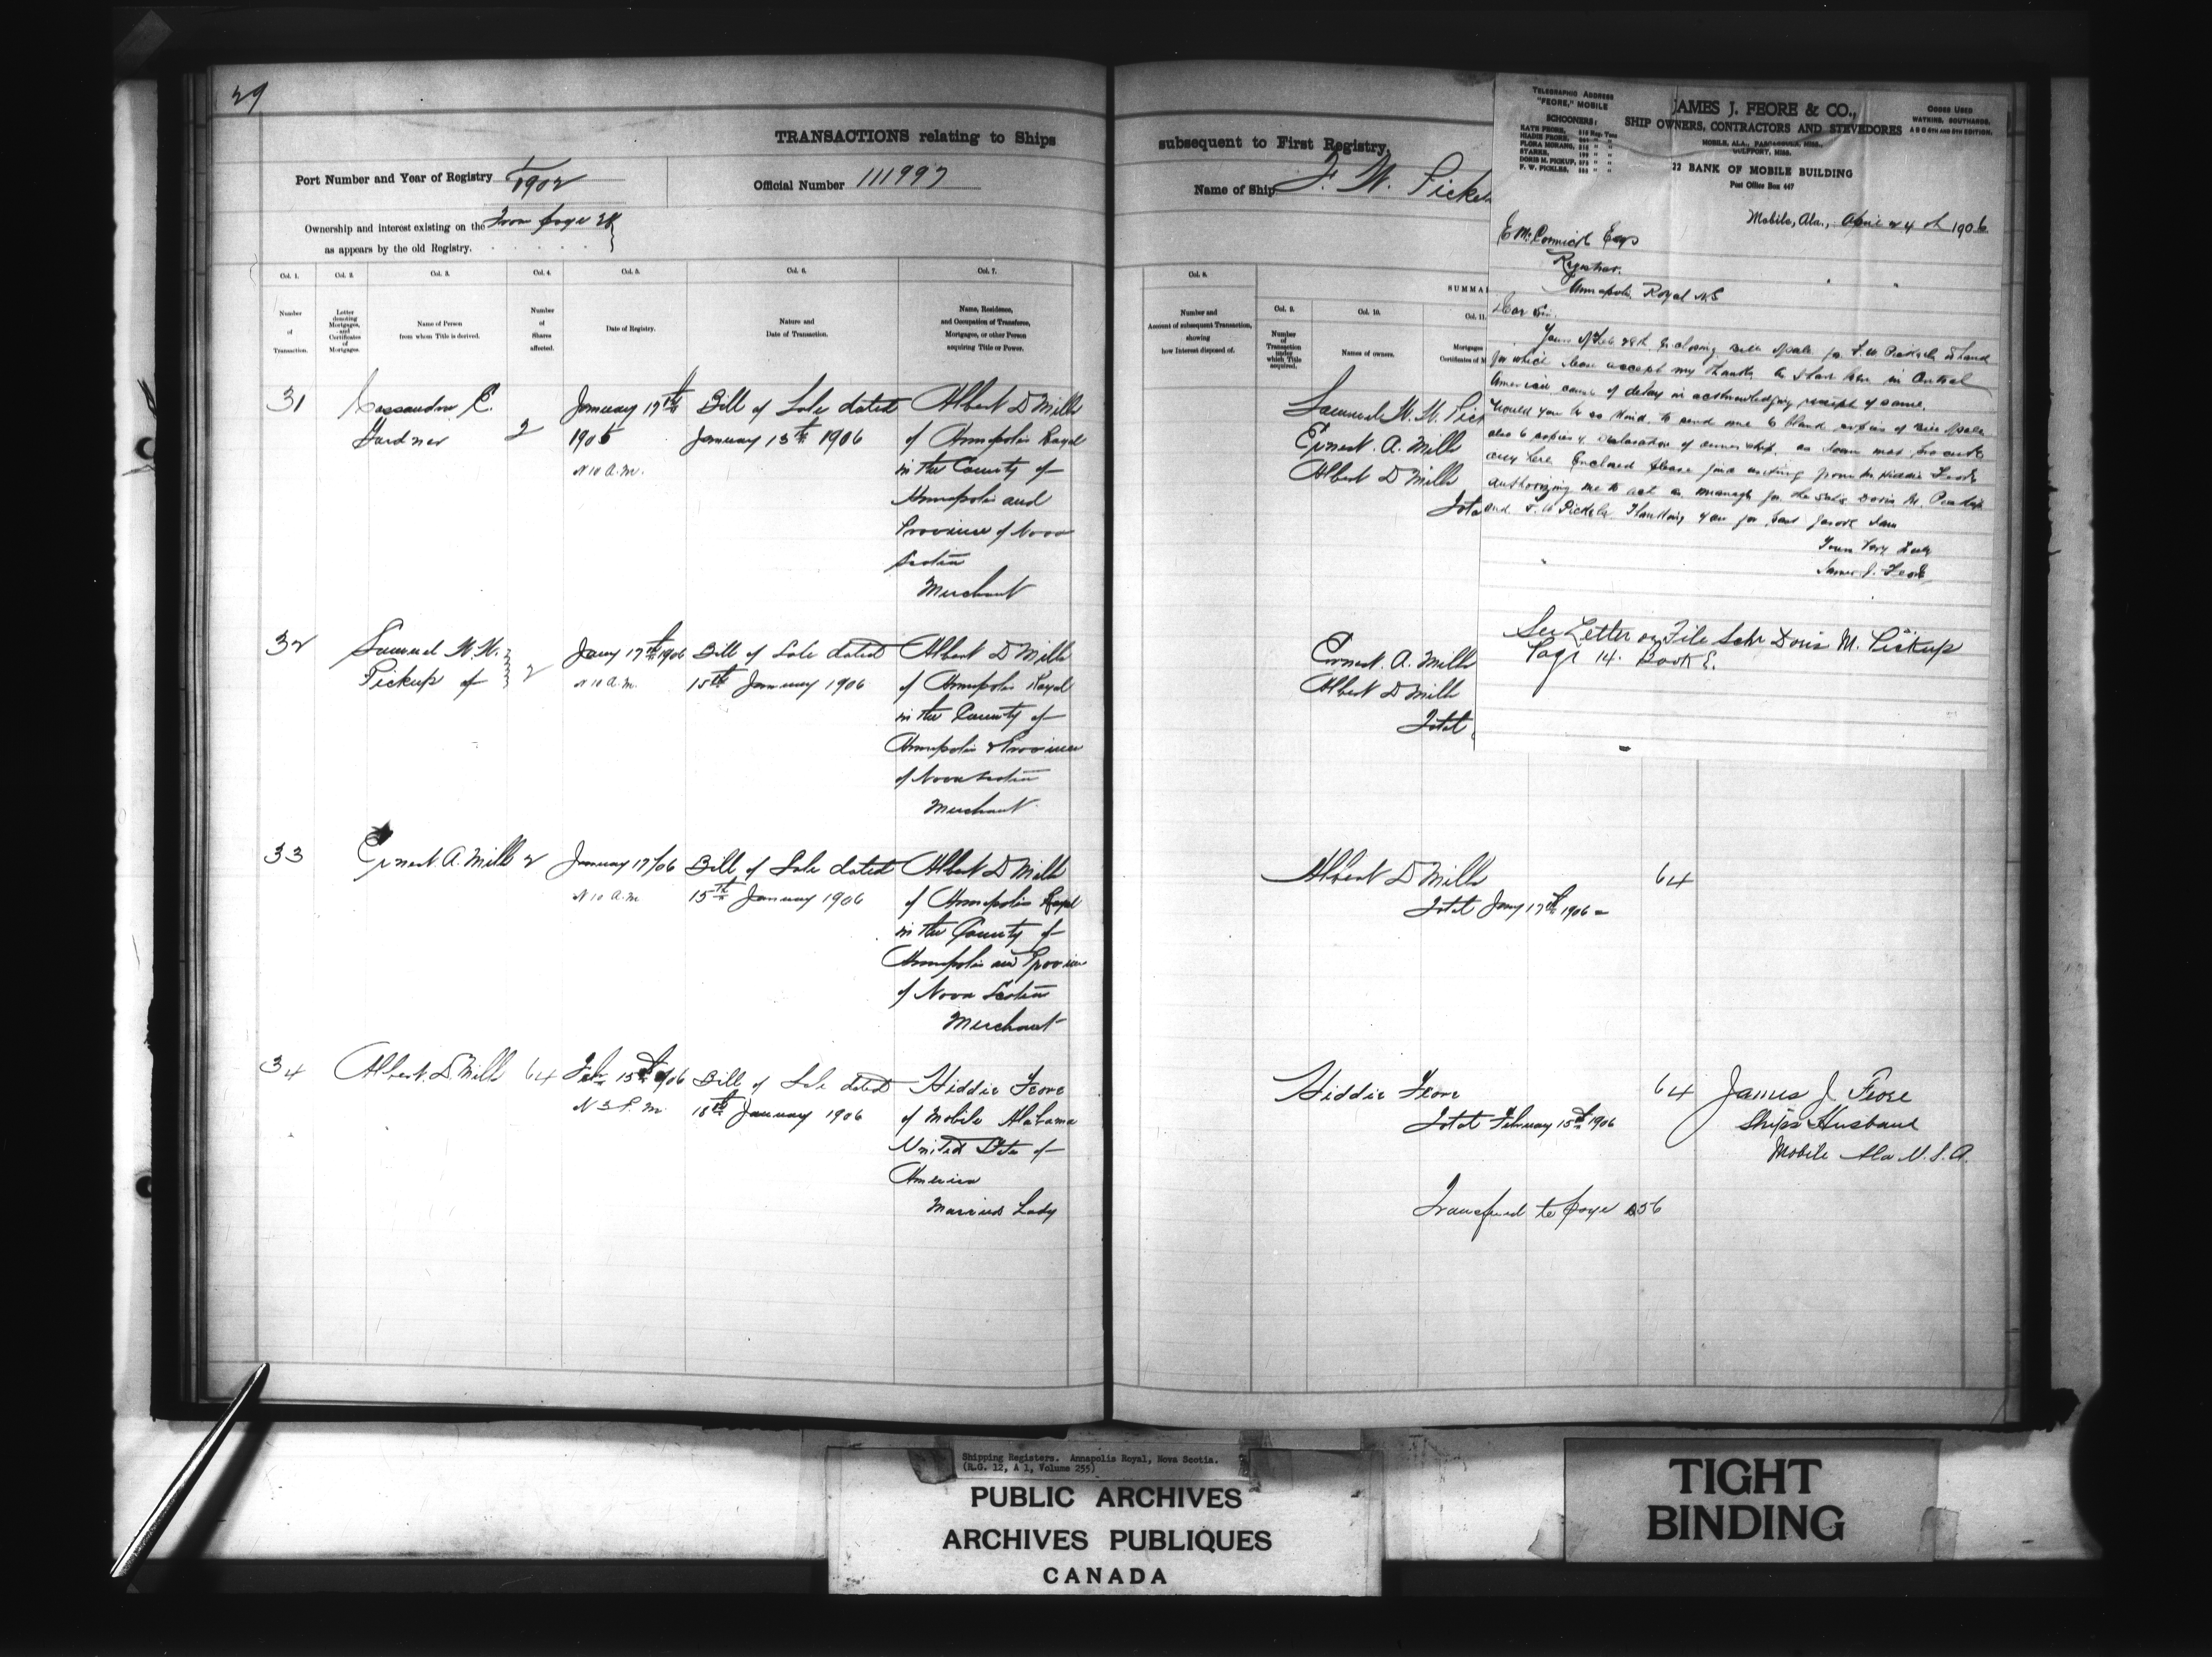 29
TRANSACTIONS relating to Ships
Port Number and Year of Registry 1/1902
Official Number 111997
Ownership and interest existing on the
as appears by the old Registry.
From page 28
Col. 1.
Col. 2.
Col. 3.
Col. 4.
Col. 5.
Col. 6.
Col. 7.
Number
of
Transaction.
Letter
denoting
Mortgages,
and
Certificates
of
Mortgages.
Name of Person
from whom Title is derived.
Number
of
Shares
affected.
Date of Registry.
Nature and
Date of Transaction.
Name, Residence,
and Occupation of Transferee,
Mortgagee, or other Person
acquiring Title or Power.
31
Cassandra E.
Gardner
2
January 17th
1906
10 A.M.
Bill of Sale dated
January 15th 1906
Albert D Mills
of Annapolis Royal
in the County of
Annapolis and
Province of Nova
Scotia
Merchant
32
Samuel W. W.
Pickup of
2
Jany 17th 1906
10 A.M.
Bill of Sale dated
15th January 1906
Albert D Mills
of Annapolis Royal
in the County of
Annapolis & Province
of Nova Scotia
Merchant
33
Ernest A. Mills
2
January 17/06
10 A.M.
Bill of Sale dated
15th January 1906
Albert D Mills
of Annapolis Royal
in the County of
Annapolis and Province
of Nova Scotia
Merchant
34
Albert D. Mills
64
Feby 15th 1906
3 P.M.
Bill of Sale dated
18th January 1906
Hiddie Feore
of Mobile Alabama
United States of
America
Married Lady
subsequent to First Registry,
Name of Ship F. W. Pickel
Col. 8.
SUMMA
Number and
Amount of subsequent Transaction,
showing
how Interest disposed of.
Col. 9.
Number
of
Transaction
under
which Title
acquired.
Col. 10.
Names of owners.
Col. 11.
Mortgages
Certificates of M
Samuel W. W. Pic
Ernest. A. Mills
Albert D Mills
Tota
Ernest. A. Mills
Albert D Mills
Total
Albert D Mills
64
Total Jany 17th 1906
Hiddie Feore
64
Total February 15th 1906
James J. Feore
Ships Husband
Mobile Ala U.S.A.
Transferred to page 256
TELEGRAPHIC ADDRESS
"FEORE," MOBILE
SCHOONERS:
KATE FEORE,
HIADIE FEORE,
FLORA MORANG,
STARKE,
DORIS M. PICKUP,
F. W. PICKLES,
JAMES J. FEORE & CO.,
SHIP OWNERS, CONTRACTORS AND STEVEDORES
MOBILE, ALA., PASCAGOULA, MISS.,
GULFPORT, MISS.
22 BANK OF MOBILE BUILDING
Post Office Box 447
CODES USED
WATKINS, SOUTHARDS,
A B C 4TH AND 5TH EDITION.
Mobile, Ala., April 24th 1906
E McCormick Esq
Registrar.
Annapolis Royal N.S
Dear Sir.
Yours of Feb 28th Enclosing Bill of Sale for F. W. Pickels to hand
for which please accept my thanks as I have been in Central
America cause of delay in acknowledging receipt of same.
Would you be so kind to send me 6 blank copies of Bill of Sale
also 6 copies of Declaration of ownership, as I can not procure
any here Enclosed please find writing from Mrs Hiddie Feore
authorizing me to act as manager for the Schrs Doris M. Pickup
and F. W Pickels. Thanking you for past favors I am
Yours Very Truly
James J. Feore
See Letter on File Schr Doris M. Pickup
Page 14. Book E.
Shipping Registers. Annapolis Royal, Nova Scotia.
(R.G. 12, A 1, Volume 255)
PUBLIC ARCHIVES
ARCHIVES PUBLIQUES
CANADA
TIGHT
BINDING